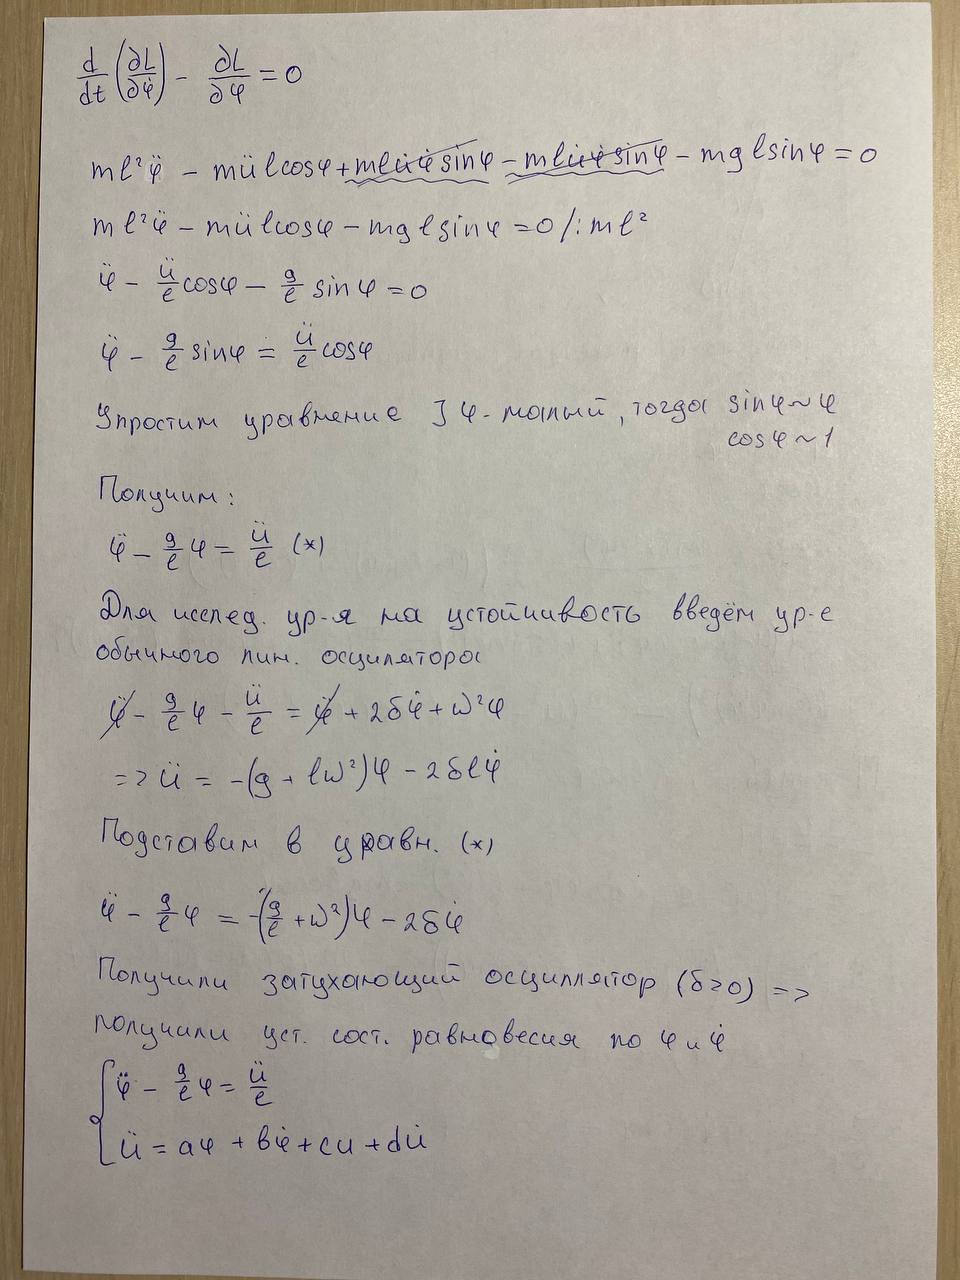 d/dt (∂L/∂φ̇) - ∂L/∂φ = 0
ml²φ̈ - mülcosφ + mlu̇φ̇sinφ - mlu̇φ̇sinφ - mglsinφ = 0
ml²φ̈ - mülcosφ - mglsinφ = 0 /: ml²
φ̈ - ü/l cosφ - g/l sinφ = 0
φ̈ - g/l sinφ = ü/l cosφ
Упростим уравнение ] φ - малый, тогда sinφ ~ φ
cosφ ~ 1
Получим:
φ̈ - g/l φ = ü/l (*)
Для исслед. ур-я на устойчивость введём ур-е
обычного лин. осцилятора
φ̈ - g/l φ - ü/l = φ̈ + 2δφ̇ + ω²φ
=> ü = -(g + lω²)φ - 2δlφ̇
Подставим в уравн. (*)
φ̈ - g/l φ = -(g/l + ω²)φ - 2δφ̇
Получили затухающий осциллятор (δ>0) =>
получили уст. сост. равновесия по φ и φ̇
φ̈ - g/l φ = ü/l
ü = aφ + bφ̇ + cu + du̇